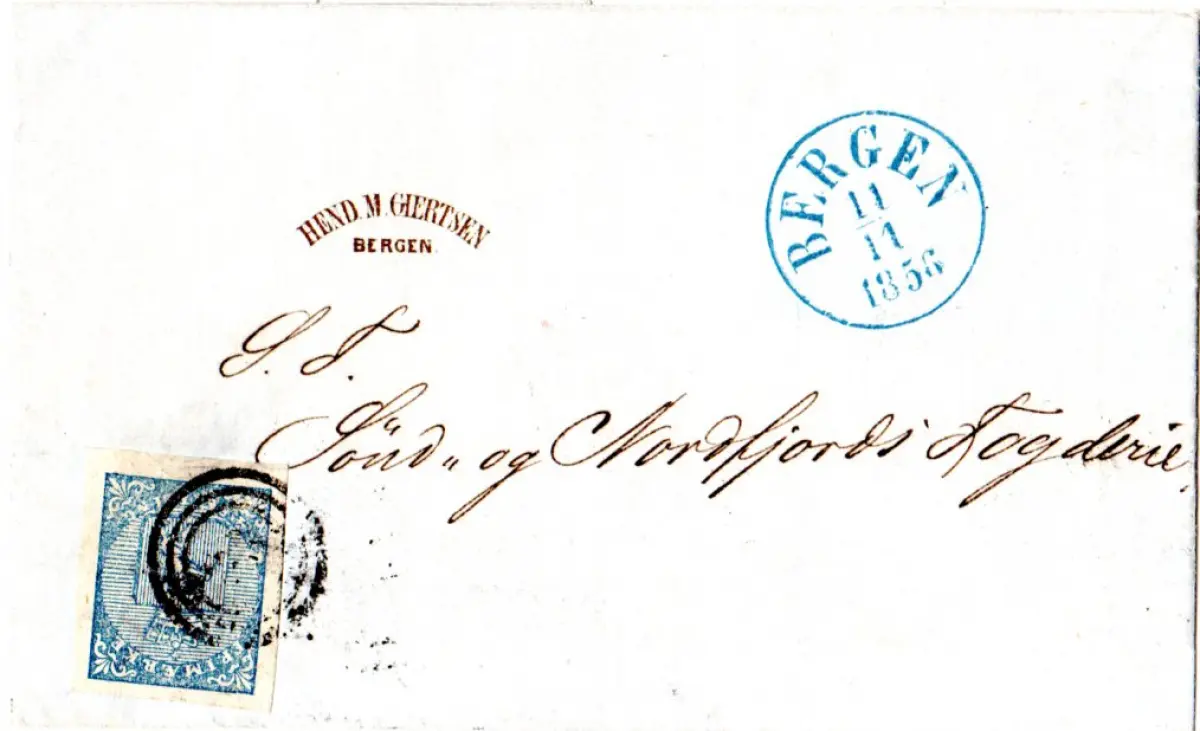 HEND. M. GIERTSEN
BERGEN.
BERGEN
11
11
1856
S. T.
Sönd„ og Nordfjords Fogderie,
FRIMÆRKE